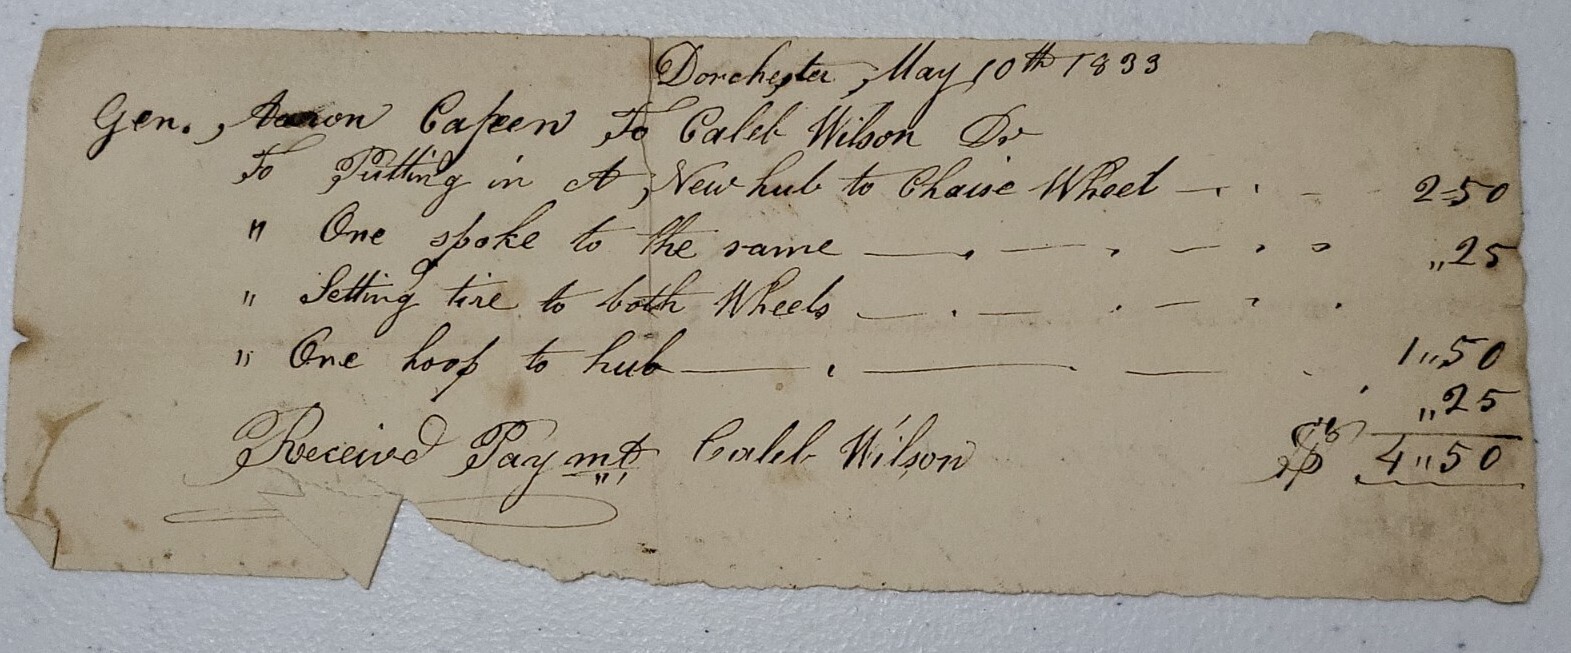 Dorchester, May 10th 1833
Gen., Aaron Capen To Caleb Wilson Dr
To Putting in A New hub to Chaise Wheel 2=50
" One spoke to the same "25
" Setting tire to both Wheels 1"50
" One hoop to hub "25
Received Paymt, Caleb Wilson $ 4"50